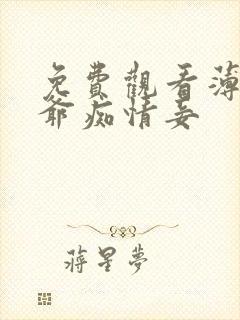 免費觀看薄
爺痴情妾
蔣星夢